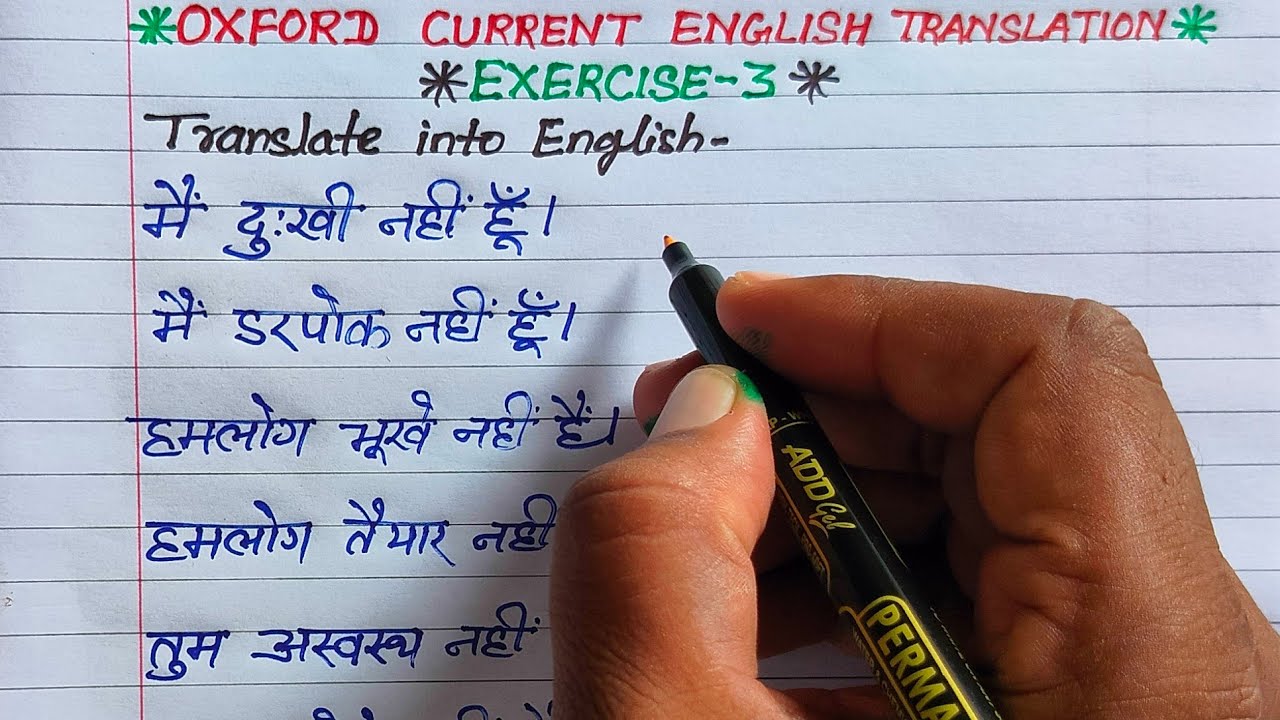 *OXFORD CURRENT ENGLISH TRANSLATION*
*EXERCISE-3*
Translate into English-
मैं दुःखी नहीं हूँ।
मैं डरपोक नहीं हूँ।
हमलोग भूखे नहीं हैं।
हमलोग तैयार नहीं
तुम अस्वस्थ नहीं
ADD Gel
PERMA